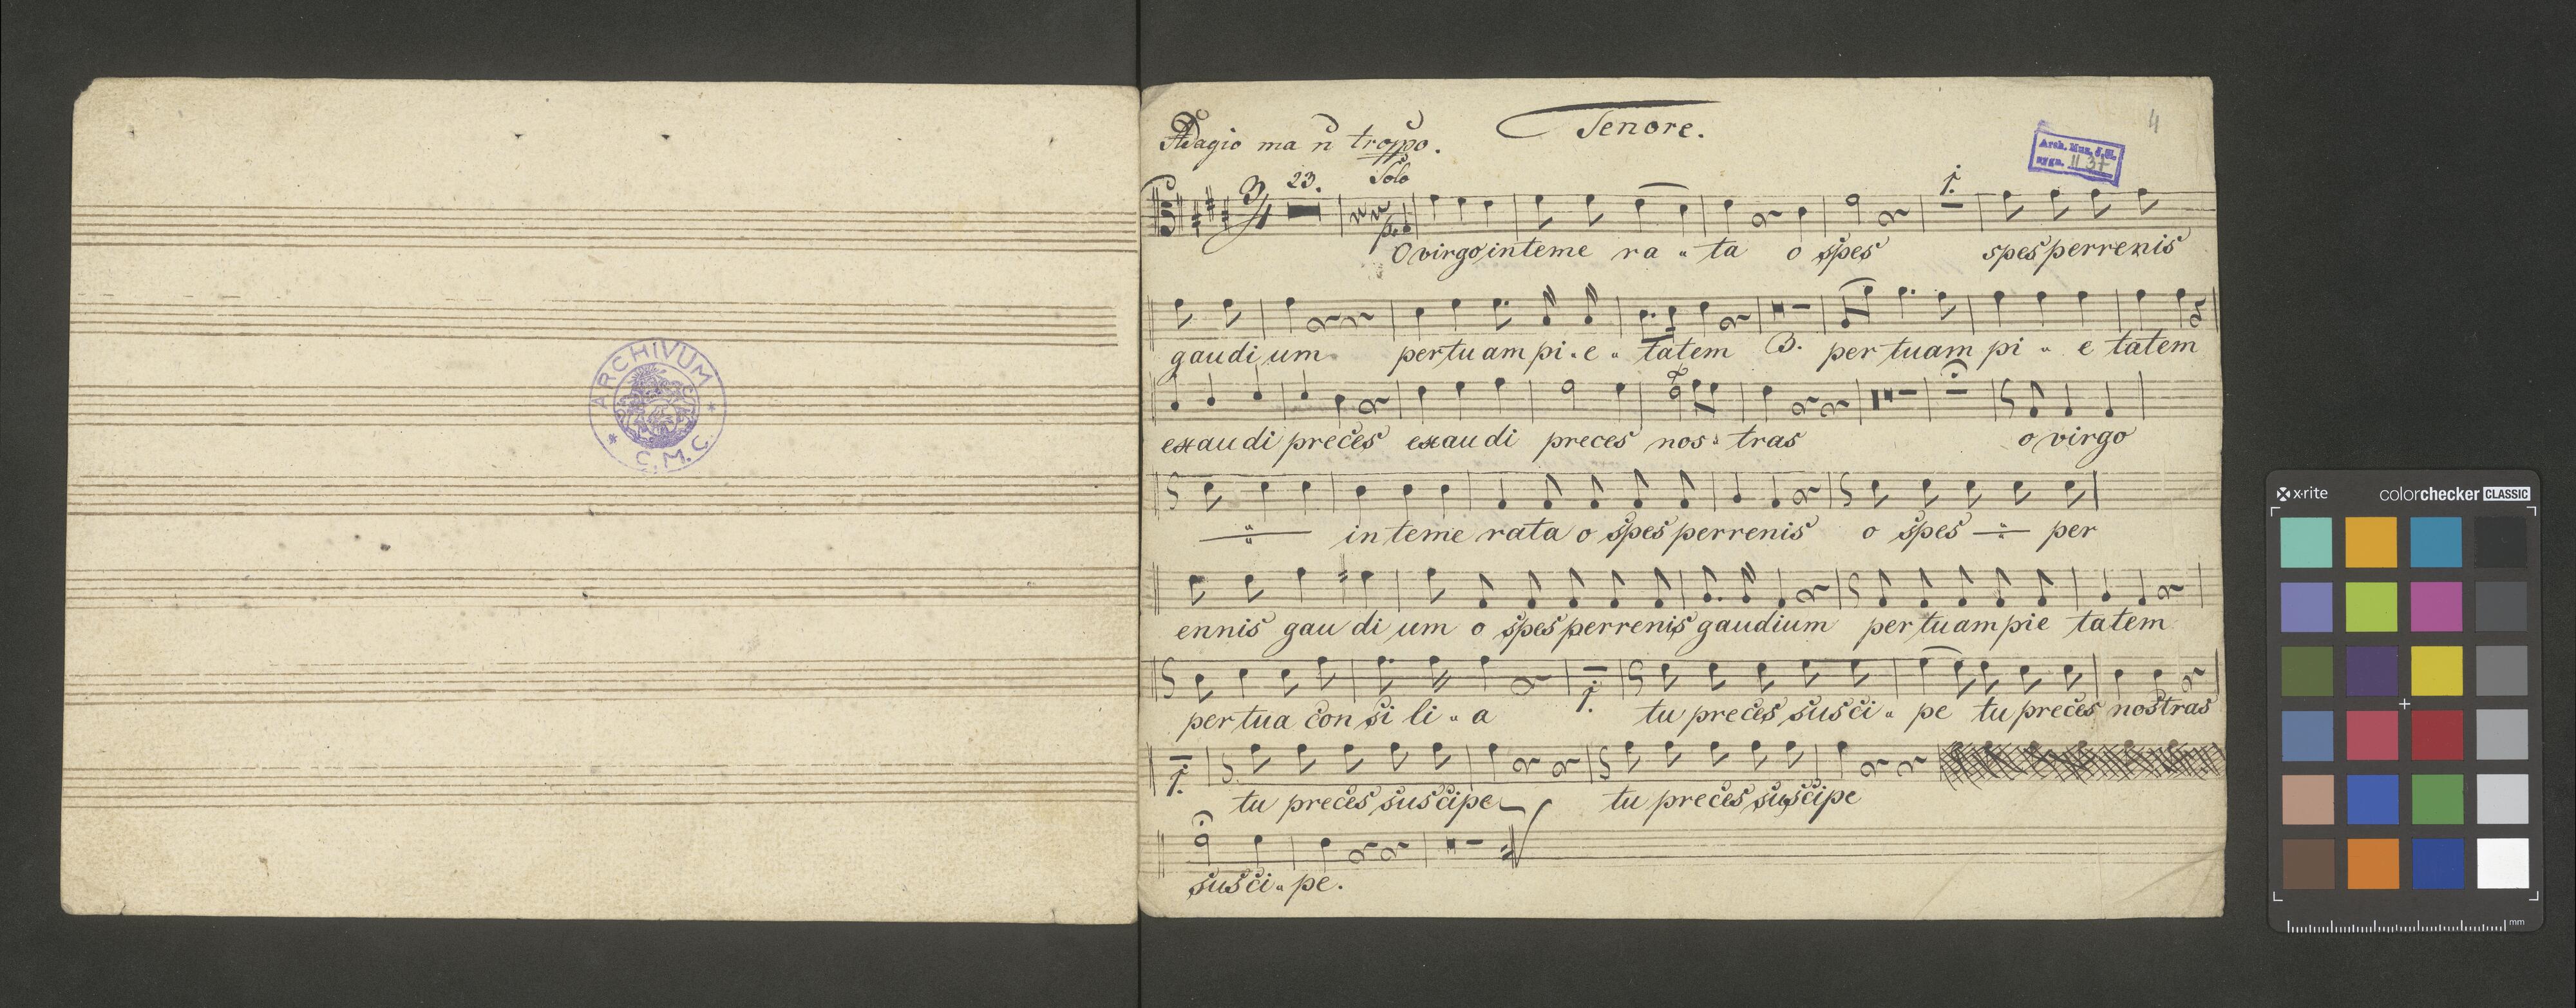 ARCHIVUM
C. M. C.
Tenore.
4
Adagio ma ñ troppo.
Arch. Muz. J. G.
sygn. II 37
23.
Solo
1.
O virgo inteme ra - ta o spes spes perrenis
gaudium pertuam pi - e - tatem 3. per tuam pi - e tatem
exaudi preces exaudi preces nos - tras o virgo
inteme rata o spes perrenis o spes per
ennis gaudium o spes perrenis gaudium per tuam pie tatem
per tua consili - a 1. tu preces susci - pe tu preces nostras
1. tu preces suscipe tu preces suscipe
susci - pe.
x-rite colorchecker CLASSIC
mm